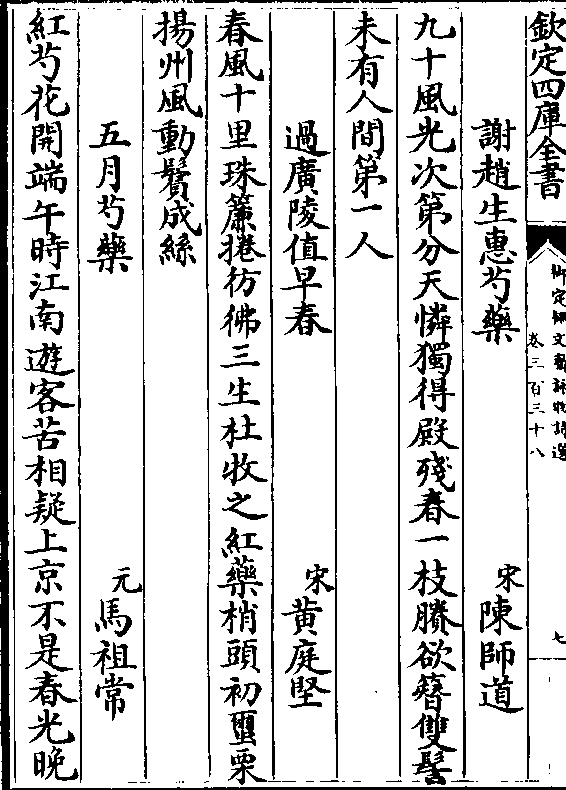 欽定四庫全書
御定佩文齋詠物詩選
卷三百三十八
七
謝趙生惠芍藥 宋陳師道
九十風光次第分天憐獨得殿殘春一枝賸欲簪雙髻
未有人間第一人
過廣陵值早春 宋黃庭堅
春風十里珠簾捲彷彿三生杜牧之紅藥梢頭初璽栗
揚州風動鬢成絲
五月芍藥 元馬祖常
紅芍花開端午時江南遊客苦相疑上京不是春光晚